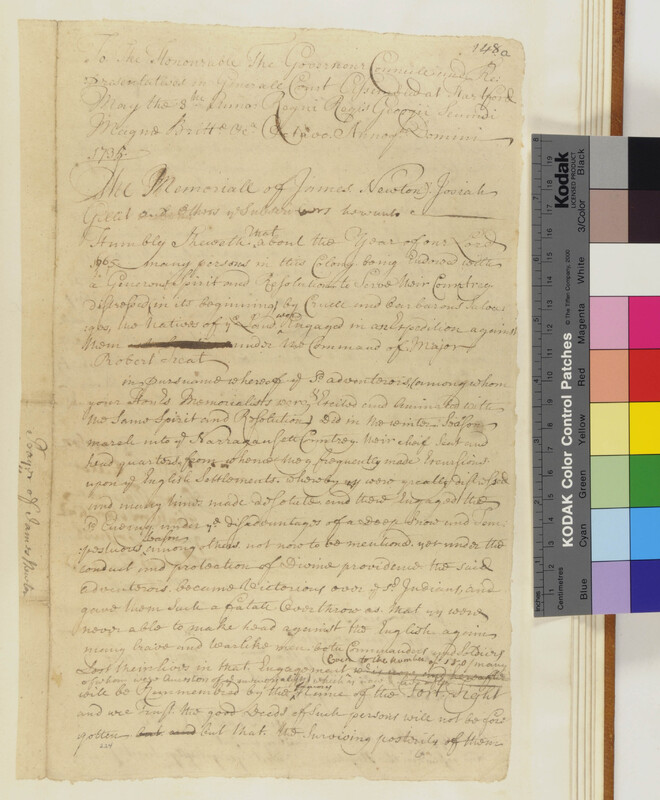 148a
To The Honourable The Governour Councill and Re
presentatives in Generall Court Assembled at Hartford
May the 8th Anno Regni Regis Georgii Secundi
Magnæ Britt &c Annoq Domini
1735
The Memoriall of James Newton Josiah
Gillit and others ye Subscribers hereunto
Humbly Sheweth that about the Year of our Lord
many persons in this Colony being Endued with
a Generous Spirit and Resolution to Serve their Countrey
distressed (in its beginning) by Cruell and Barbarous
the Natives of ye Land Engaged in an Expedition against
them under the Command of Major
Robert Treat
in pursuance whereof ye sd adventerors (among whom
your Honrs Memorialists were) Excited and Animated with
the Same Spirit and Resolution Did in the winter Season
march into ye Narragansett Cuntrey their cheif Seat and
head quarters from whence they frequently made Incursions
upon ye English Settlements whereby ys were greatly distressed
and many times made desolate and there Engaged the
sd Enemy under ye disadvantages of a deep snow and Tem
pestuous Season among others not now to be mentioned yet under the
conduct and protection of Divine providence the said
adventerors became Victorious over ye sd Indians and
gave them Such a fatale Overthrow as that ys were
never able to make head against the English again
many brave and warlike men both Commanders and Soldiers
Lost their lives in that Engagement Even to the number of
will be Remembered by the famous name of the Fort Fight
and we trust the good Deeds of Such persons will not be fore
gotten but and but that the Surviving posterity of them
KODAK Color Control Patches
Kodak
LICENSED PRODUCT
© The Tiffen Company, 2000
Inches
Centimetres
Blue
Cyan
Green
Yellow
Red
Magenta
White
3/Color
Black